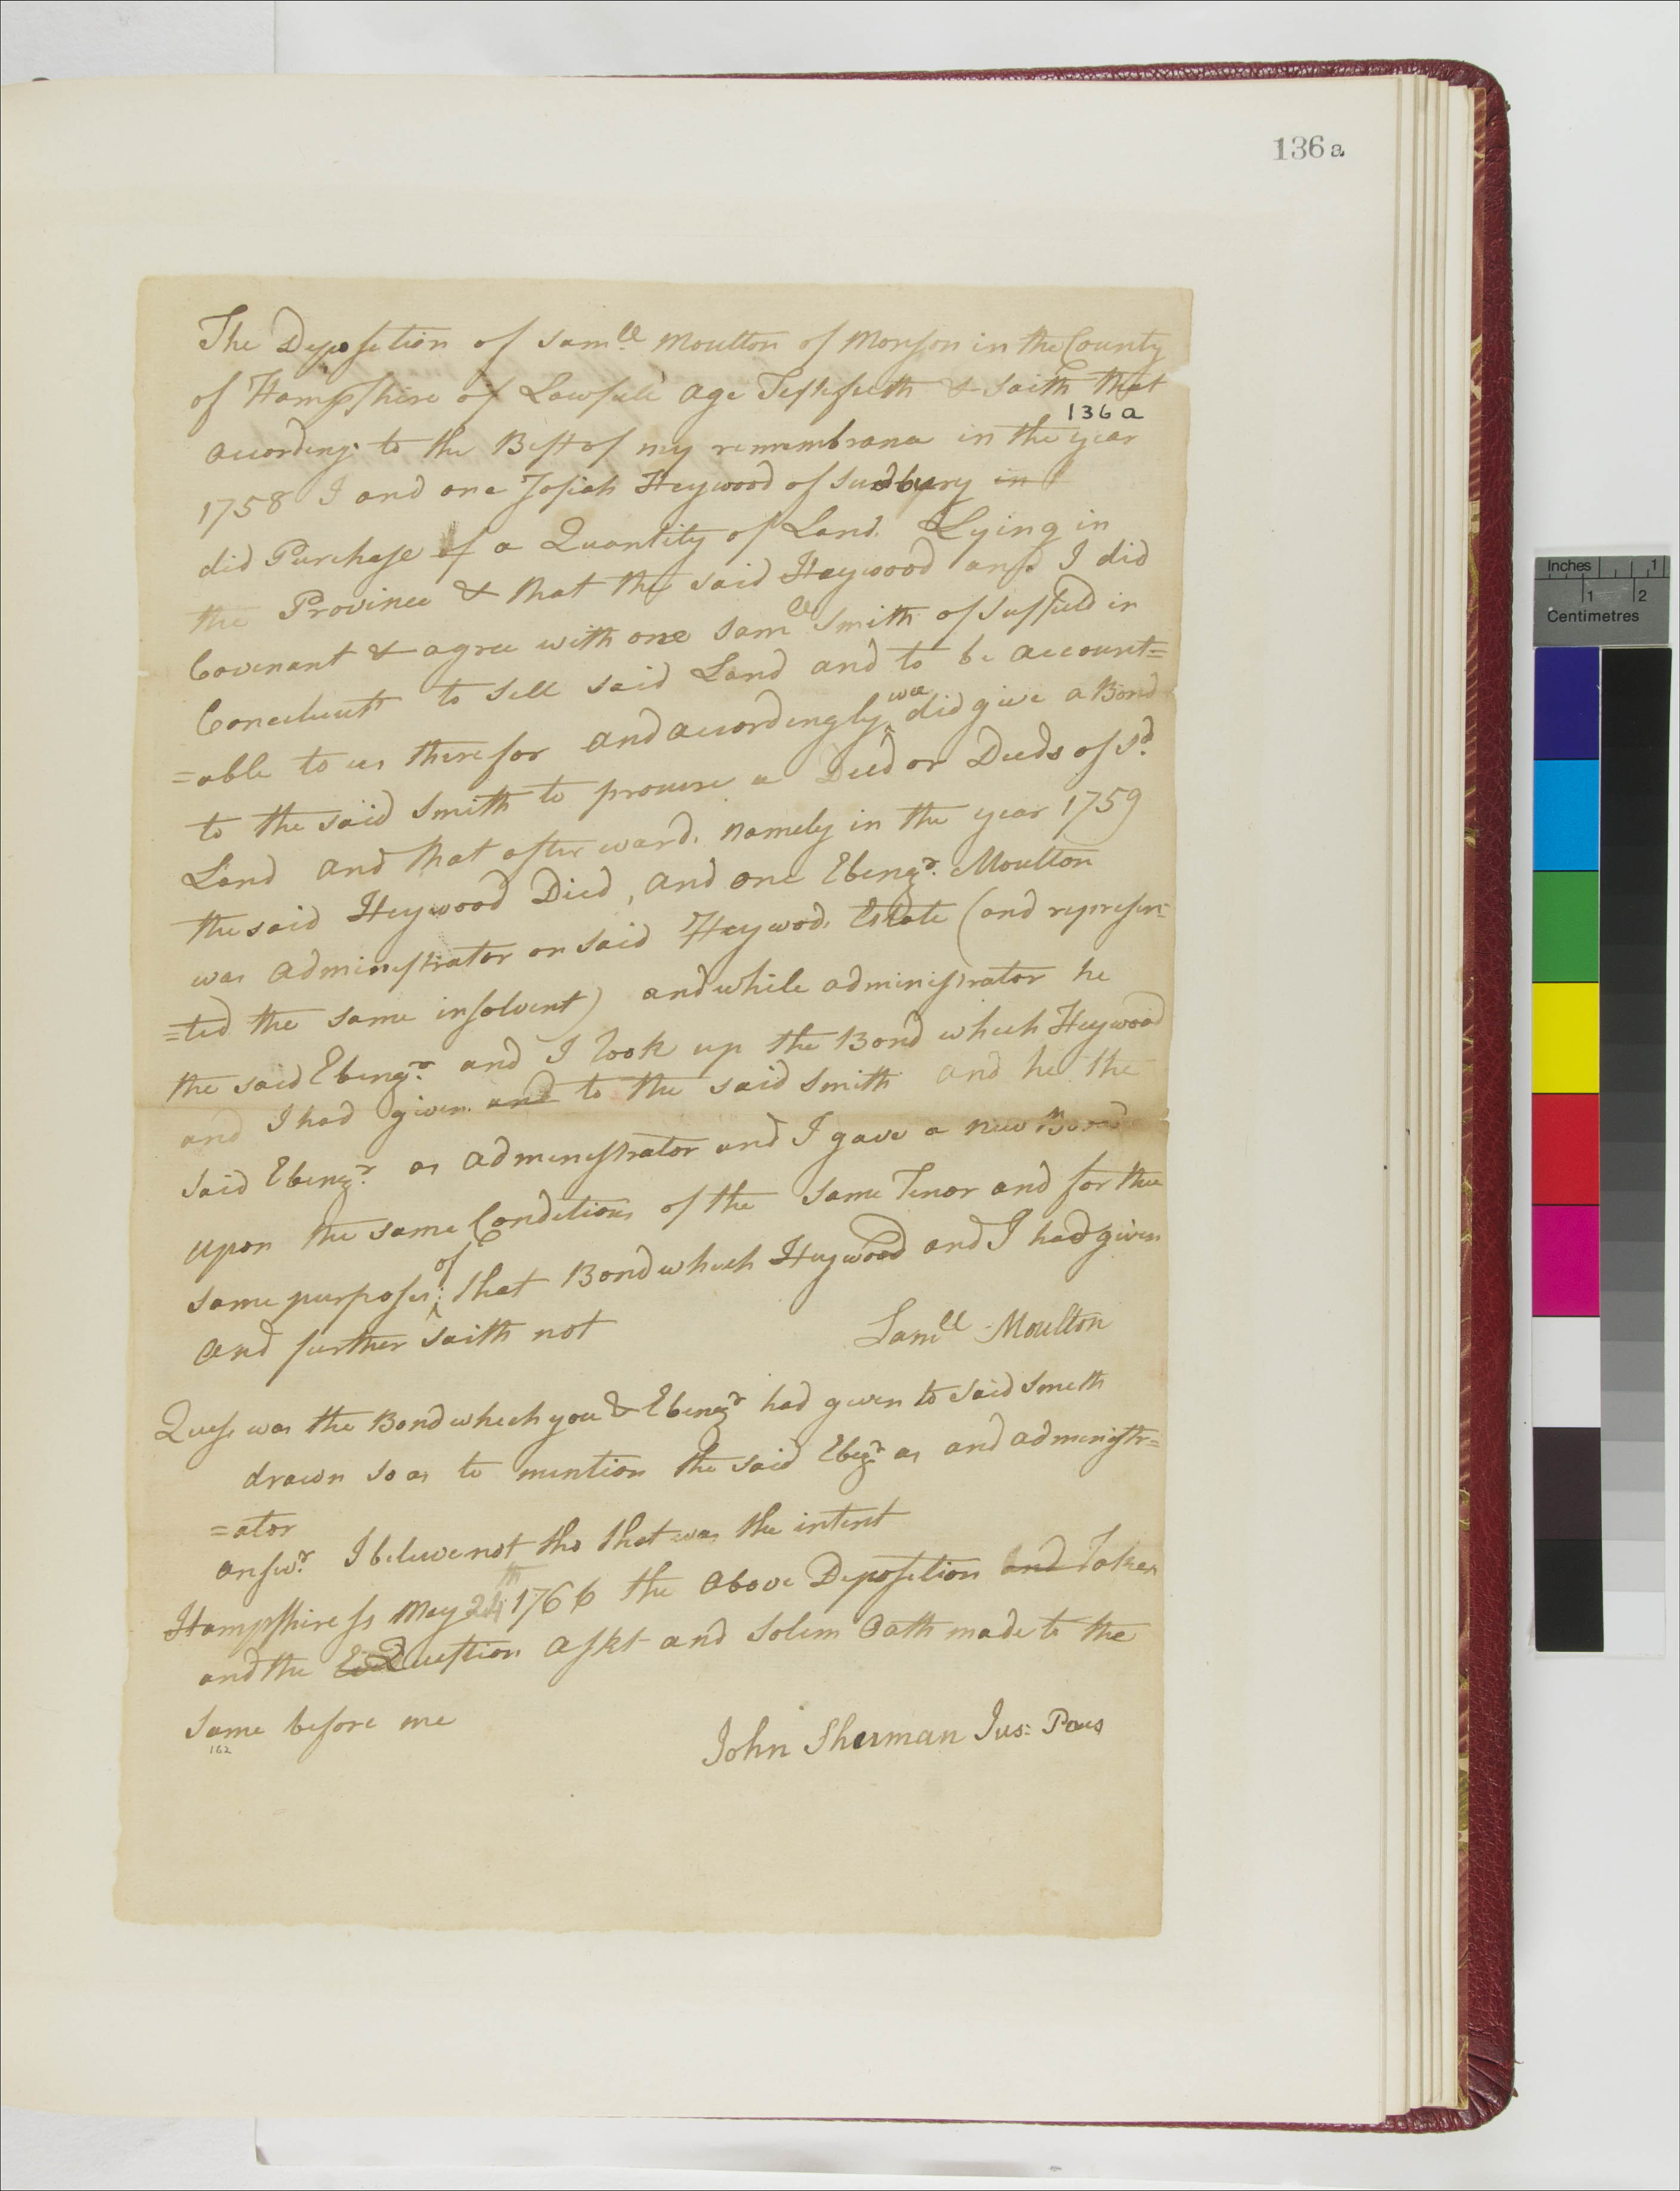 136a
The Deposetion of Samll Moulton of Monson in the County
of Hampshire of Lawfull age Testefieth & saith that
136a
according to the Best of my remembrance in the year
1758 I and one Josiah Heywood of Sudbury in
did Purchase of a Quantity of Land Lying in
the Province & that the said Heywood and I did
Covenant & agree with one Samll Smith of Suffield in
Conecticutt to sell said Land and to be account=
=able to us therefor and accordingly wee did give a Bond
to the said Smith to procure a Deed or Deeds of sd
Land and that afterward, namely in the year 1759
the said Heywood Died, and one Ebenzr. Moulton
was Adminestrator on said Heywods Estate (and represen=
=ted the same insolvent) and while administrator he
the said Ebenzr. and I took up the Bond which Heywood
and I had given and to the said Smith and he the
said Ebenzr. as Admenestrator and I gave a new Bond
upon the same Conditions of the Same Tenor and for thee
same purposes of that Bond which Heywood and I had given
and further saith not
Samll Moulton
Quess was the Bond which you & Ebenezr had given to said Smeth
drawn so as to mention the said Ebezr. as and admenistr=
=ator
answr. I beleive not tho that was the intent
Hampshire ss May 24th 1766 the above Deposetion and Taken
and the Question askt and Solem Oath made to the
Same before me
162
John Sherman Jus: Paes